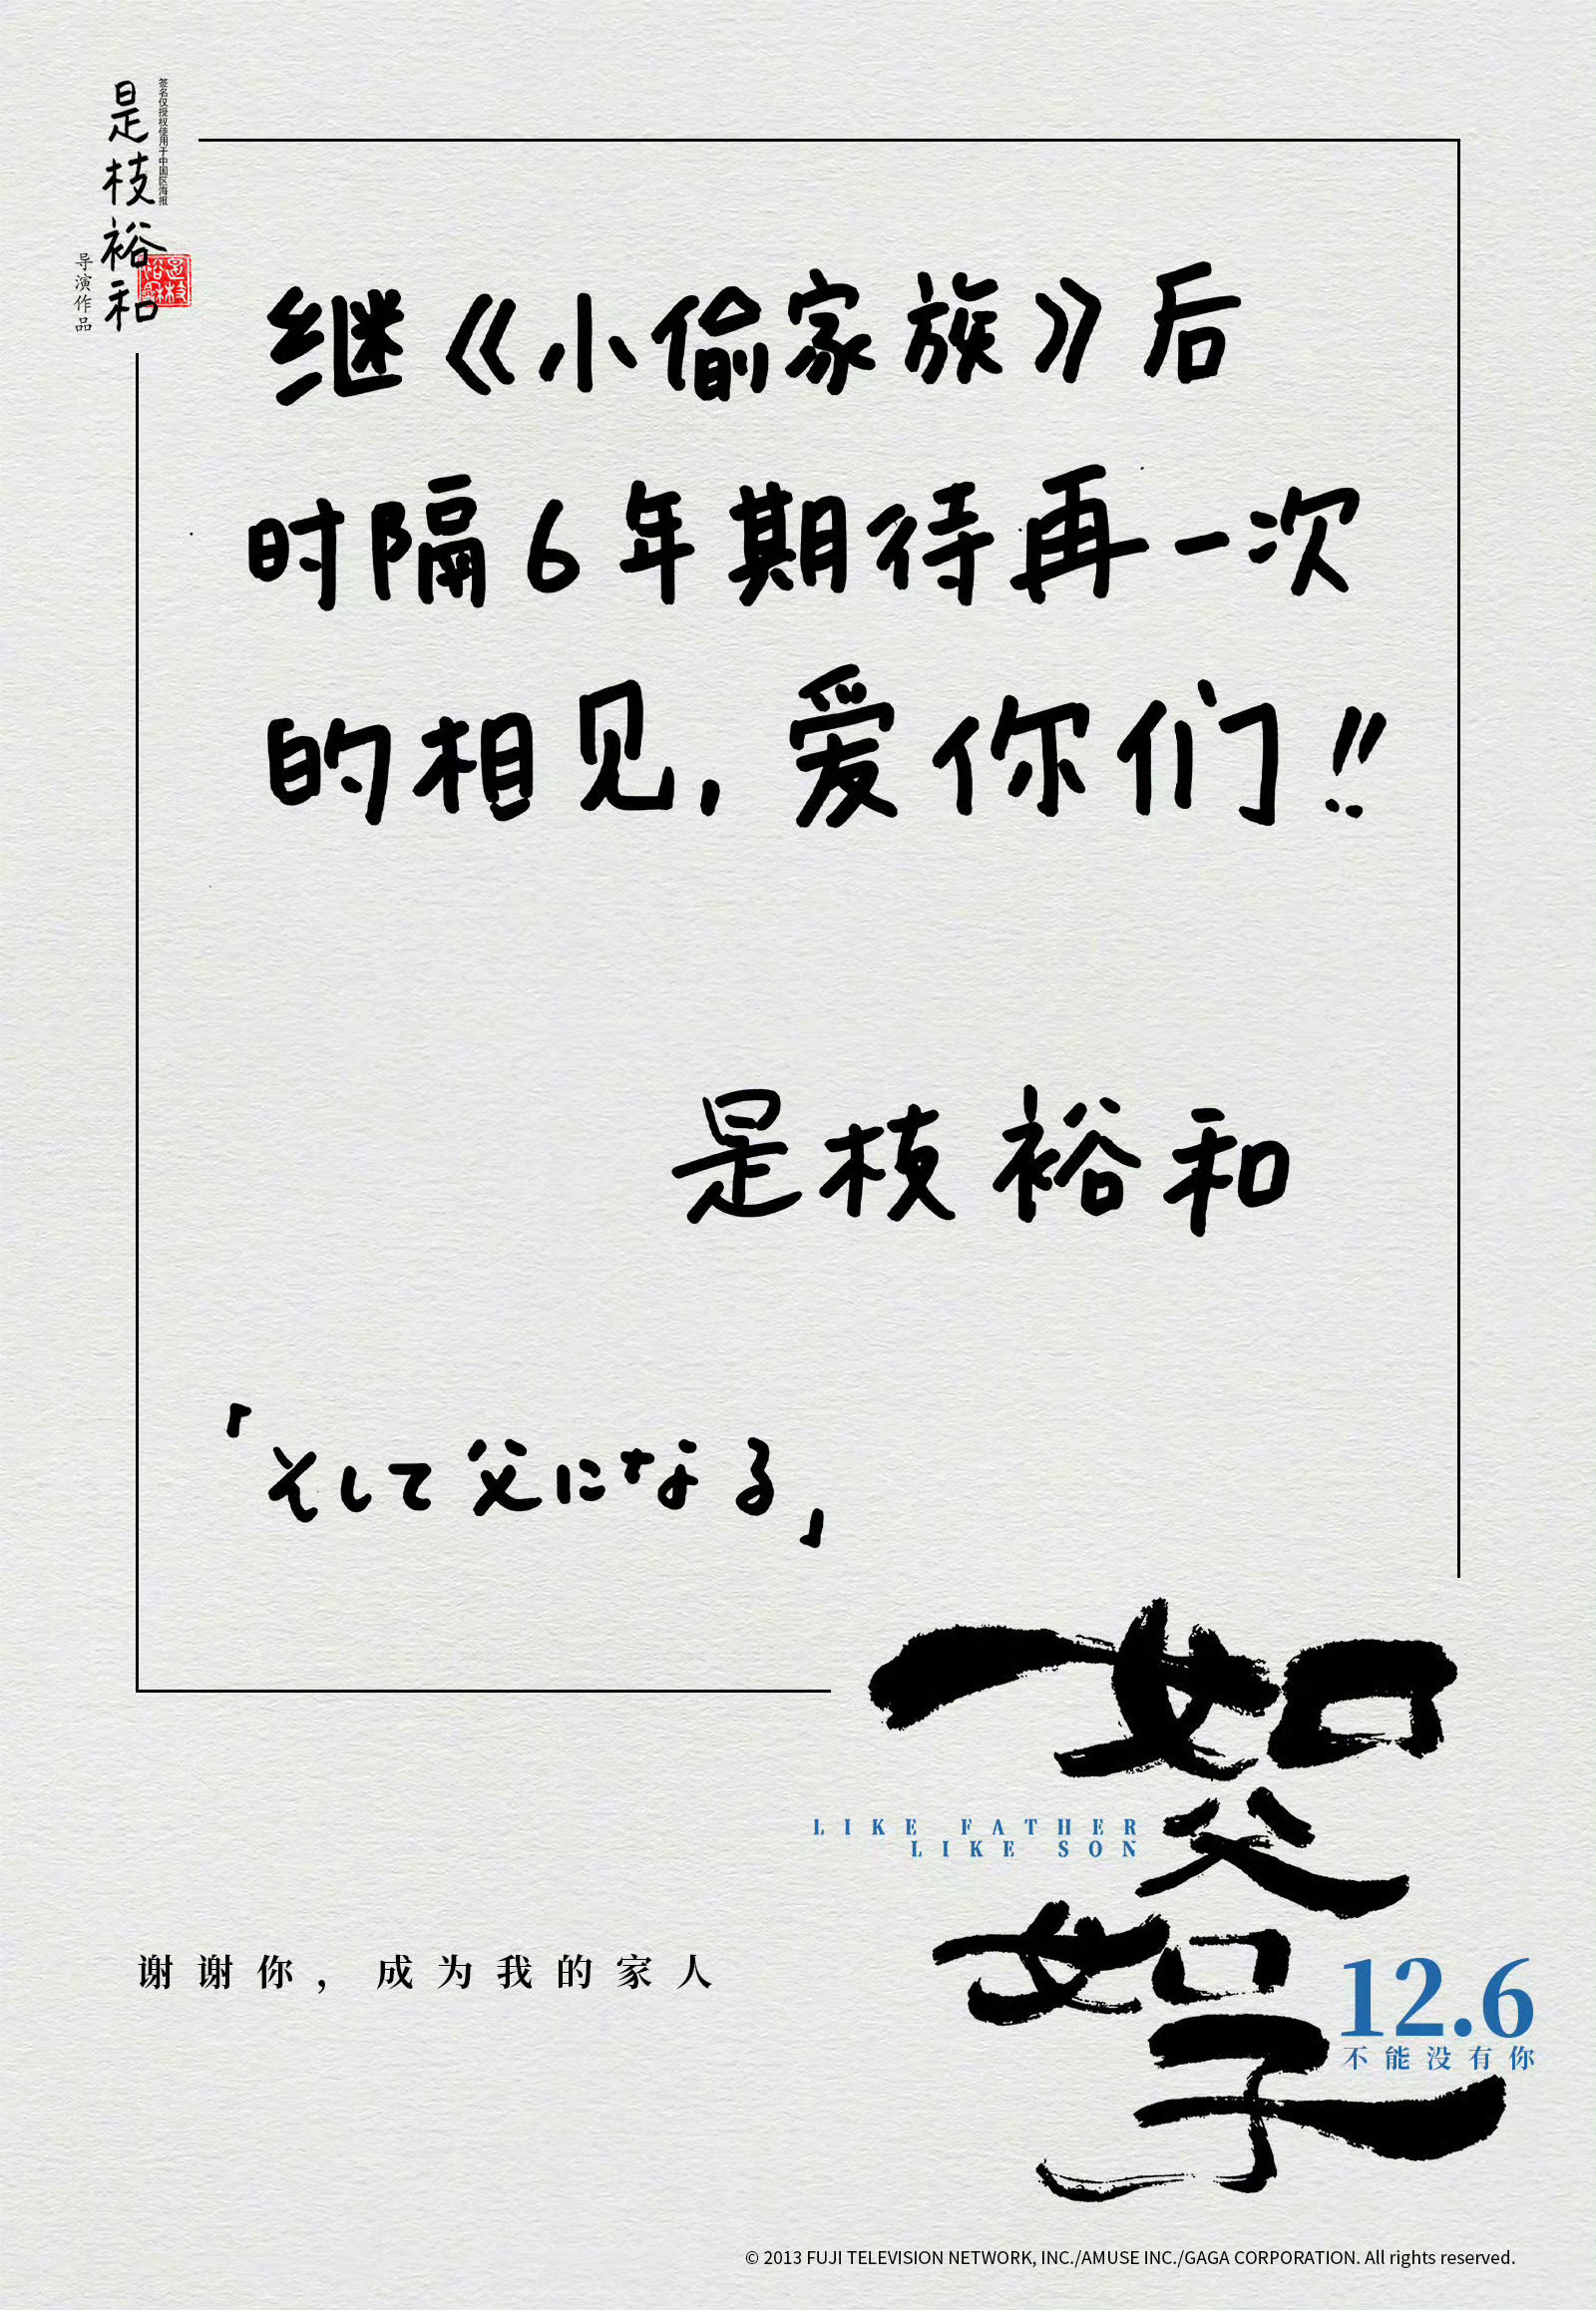 是枝裕和
签名仅授权使用于中国区海报
导演作品
继《小偷家族》后
时隔6年期待再一次
的相见，爱你们!!
是枝裕和
「そして父になる」
如父如子
LIKE FATHER
LIKE SON
谢谢你，成为我的家人
12.6
不能没有你
© 2013 FUJI TELEVISION NETWORK, INC./AMUSE INC./GAGA CORPORATION. All rights reserved.